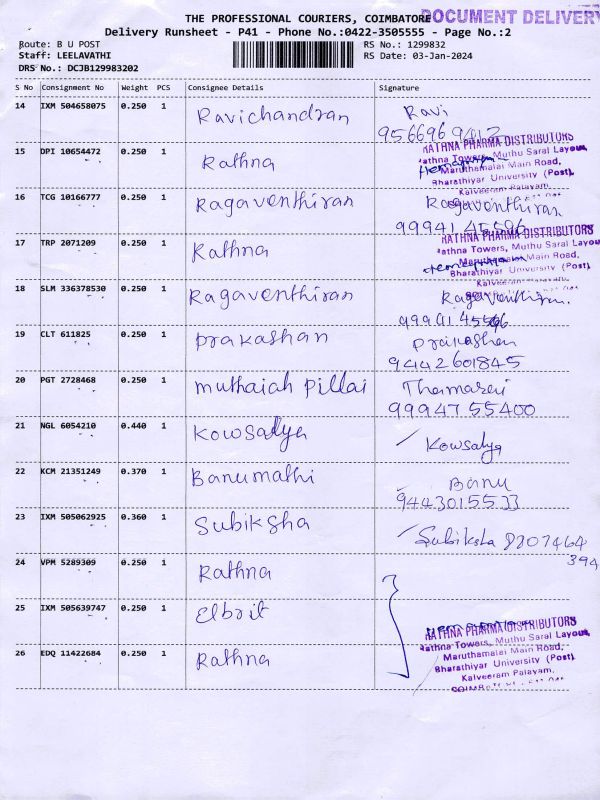 THE PROFESSIONAL COURIERS, COIMBATORE
DOCUMENT DELIVERY
Delivery Runsheet - P41 - Phone No.:0422-3505555 - Page No.:2
Route: B U POST
RS No.: 1299832
Staff: LEELAVATHI
RS Date: 03-Jan-2024
DRS No.: DCJB129983202
S No Consignment No Weight PCS Consignee Details Signature
14 IXM 504658075 0.250 1 Ravichandran Ravi
9566969412
15 DPI 10654472 0.250 1 Rathna
RATHNA PHARMA DISTRIBUTORS
Rathna Towers, Muthu Saral Layout,
Maruthamalai Main Road,
Bharathiyar University (Post),
Kalveeram Palayam,
16 TCG 10166777 0.250 1 Ragaventhiran Ragaventhiran
99941 45506
17 TRP 2071209 0.250 1 Rathna
RATHNA PHARMA DISTRIBUTORS
Rathna Towers, Muthu Saral Layou,
Maruthamalai Main Road,
Bharathiyar University (Post),
18 SLM 336378530 0.250 1 Ragaventhiran Ragaventhiran.
19 CLT 611825 0.250 1 Prakashan Prakashan
9442601845
20 PGT 2728468 0.250 1 muthaiah Pillai Thamarai
99947 55400
21 NGL 6054210 0.440 1 Kowsalya Kowsalya
22 KCM 21351249 0.370 1 Banumathi Banu
9443015533
23 IXM 505062925 0.360 1 Subiksha Subiksha 8207464
394
24 VPM 5289309 0.250 1 Rathna
25 IXM 505639747 0.250 1 Elbrit
RATHNA PHARMA DISTRIBUTORS
Rathna Towers, Muthu Saral Layou,
26 EDQ 11422684 0.250 1 Rathna
Maruthamalai Main Road,
Bharathiyar University (Post),
Kalveeram Palayam,